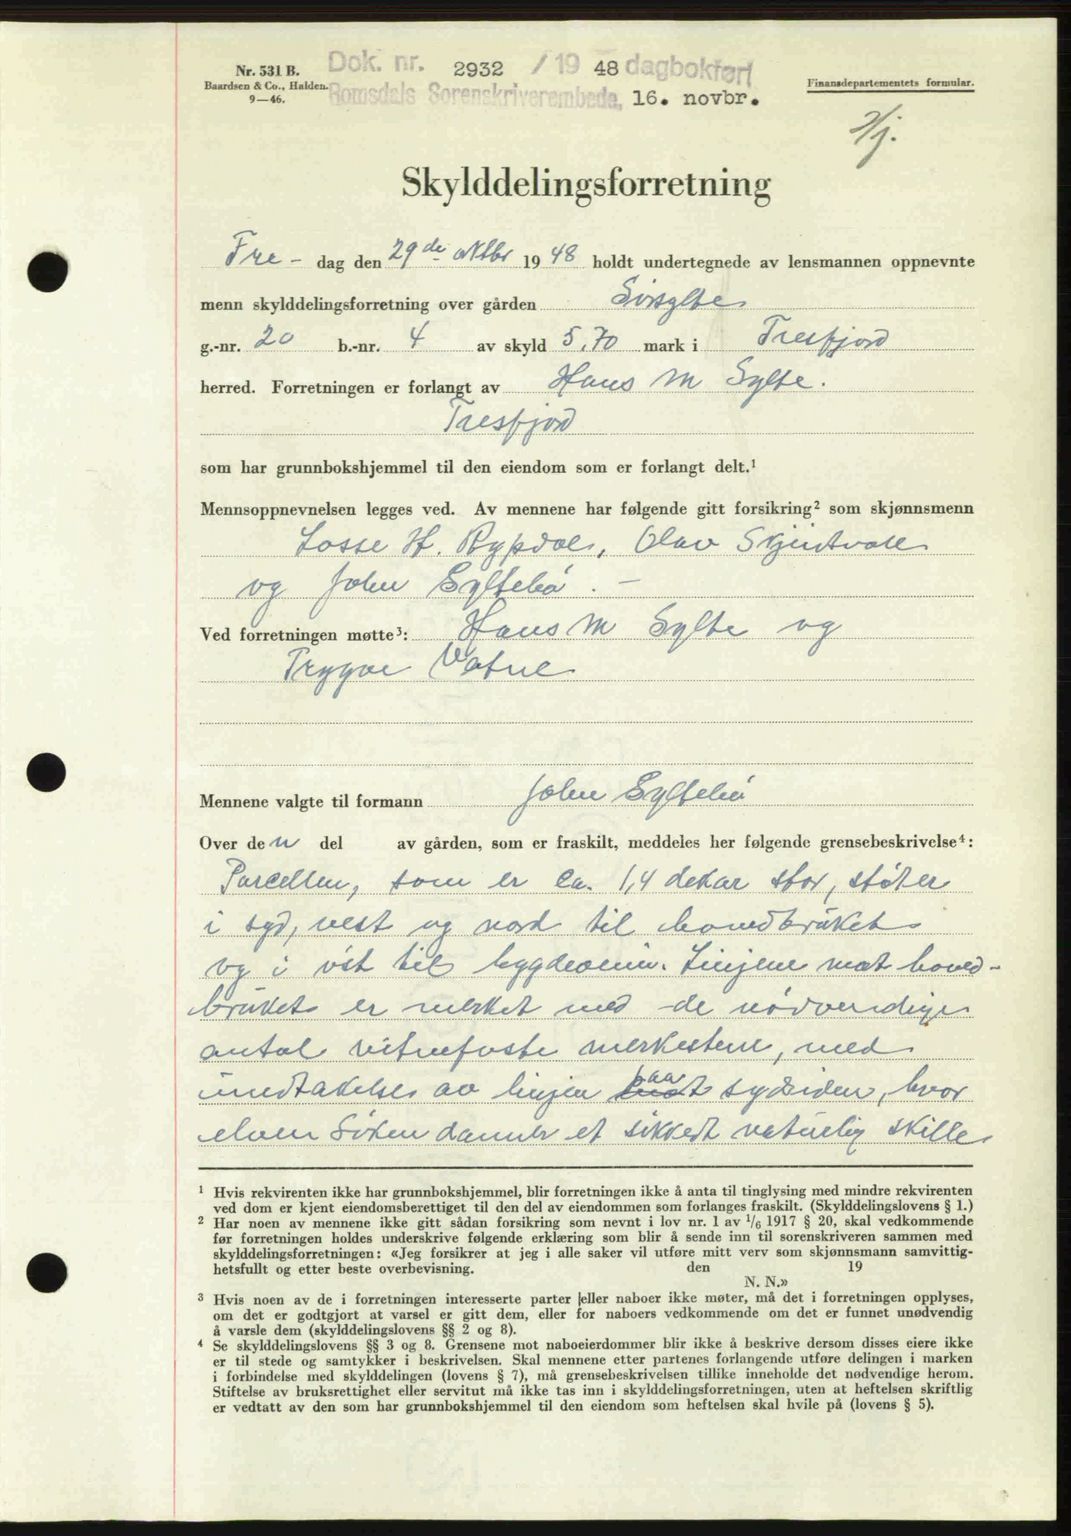 Nr. 531 B.
Baardsen & Co., Halden.
9—46.
Dok. nr. 2932 / 19 48 dagbokført
Romsdals Sorenskriverembede, 16. novbr.
Finansdepartementets formular.
Skylddelingsforretning
Fre - dag den 29de oktbr 19 48 holdt undertegnede av lensmannen oppnevnte
menn skylddelingsforretning over gården Sørsylte
g.-nr. 20 b.-nr. 4 av skyld 5,70 mark i Tresfjord
herred. Forretningen er forlangt av Hans M Sylte.
Tresfjord
som har grunnbokshjemmel til den eiendom som er forlangt delt.¹
Mennsoppnevnelsen legges ved. Av mennene har følgende gitt forsikring² som skjønnsmenn
Lasse H. Rypdal, Olav Skjeldvoll
og John Syltebø. —
Ved forretningen møtte³: Hans M Sylte og
Trygve Vatne
Mennene valgte til formann John Syltebø
Over den del av gården, som er fraskilt, meddeles her følgende grensebeskrivelse⁴:
Parcellen, som er ca. 1,4 dekar stor, støter
i syd, vest og nord til hovedbruket
og i øst til bygdeveien. Linjene mot hoved-
bruket er merket med de nødvendige
antal vitnefaste merkestene, med
undtakelse av linjen paa sydsiden, hvor
elven danner et sikkert naturlig skille
¹ Hvis rekvirenten ikke har grunnbokshjemmel, blir forretningen ikke å anta til tinglysing med mindre rekvirenten
ved dom er kjent eiendomsberettiget til den del av eiendommen som forlanges fraskilt. (Skylddelingslovens § 1.)
² Har noen av mennene ikke gitt sådan forsikring som nevnt i lov nr. 1 av ¹/₆ 1917 § 20, skal vedkommende
før forretningen holdes underskrive følgende erklæring som blir å sende inn til sorenskriveren sammen med
skylddelingsforretningen: «Jeg forsikrer at jeg i alle saker vil utføre mitt verv som skjønnsmann samvittig-
hetsfullt og etter beste overbevisning. den 19
N. N.»
³ Hvis noen av de i forretningen interesserte parter eller naboer ikke møter, må det i forretningen opplyses,
om det er godtgjort at varsel er gitt dem, eller for naboers vedkommende om det er funnet unødvendig
å varsle dem (skylddelingslovens §§ 2 og 8).
⁴ Se skylddelingslovens §§ 3 og 8. Grensene mot naboeierdommer blir ikke å beskrive dersom disses eiere ikke
er til stede og samtykker i beskrivelsen. Skal mennene etter partenes forlangende utføre delingen i marken
i forbindelse med skylddelingen (lovens § 7), må grensebeskrivelsen tillike inneholde det nødvendige herom.
Stiftelse av bruksrettighet eller servitut må ikke tas inn i skylddelingsforretningen, uten at heftelsen skriftlig
er vedtatt av den som har grunnbokshjemmel til den eiendom som heftelsen skal hvile på (lovens § 5).